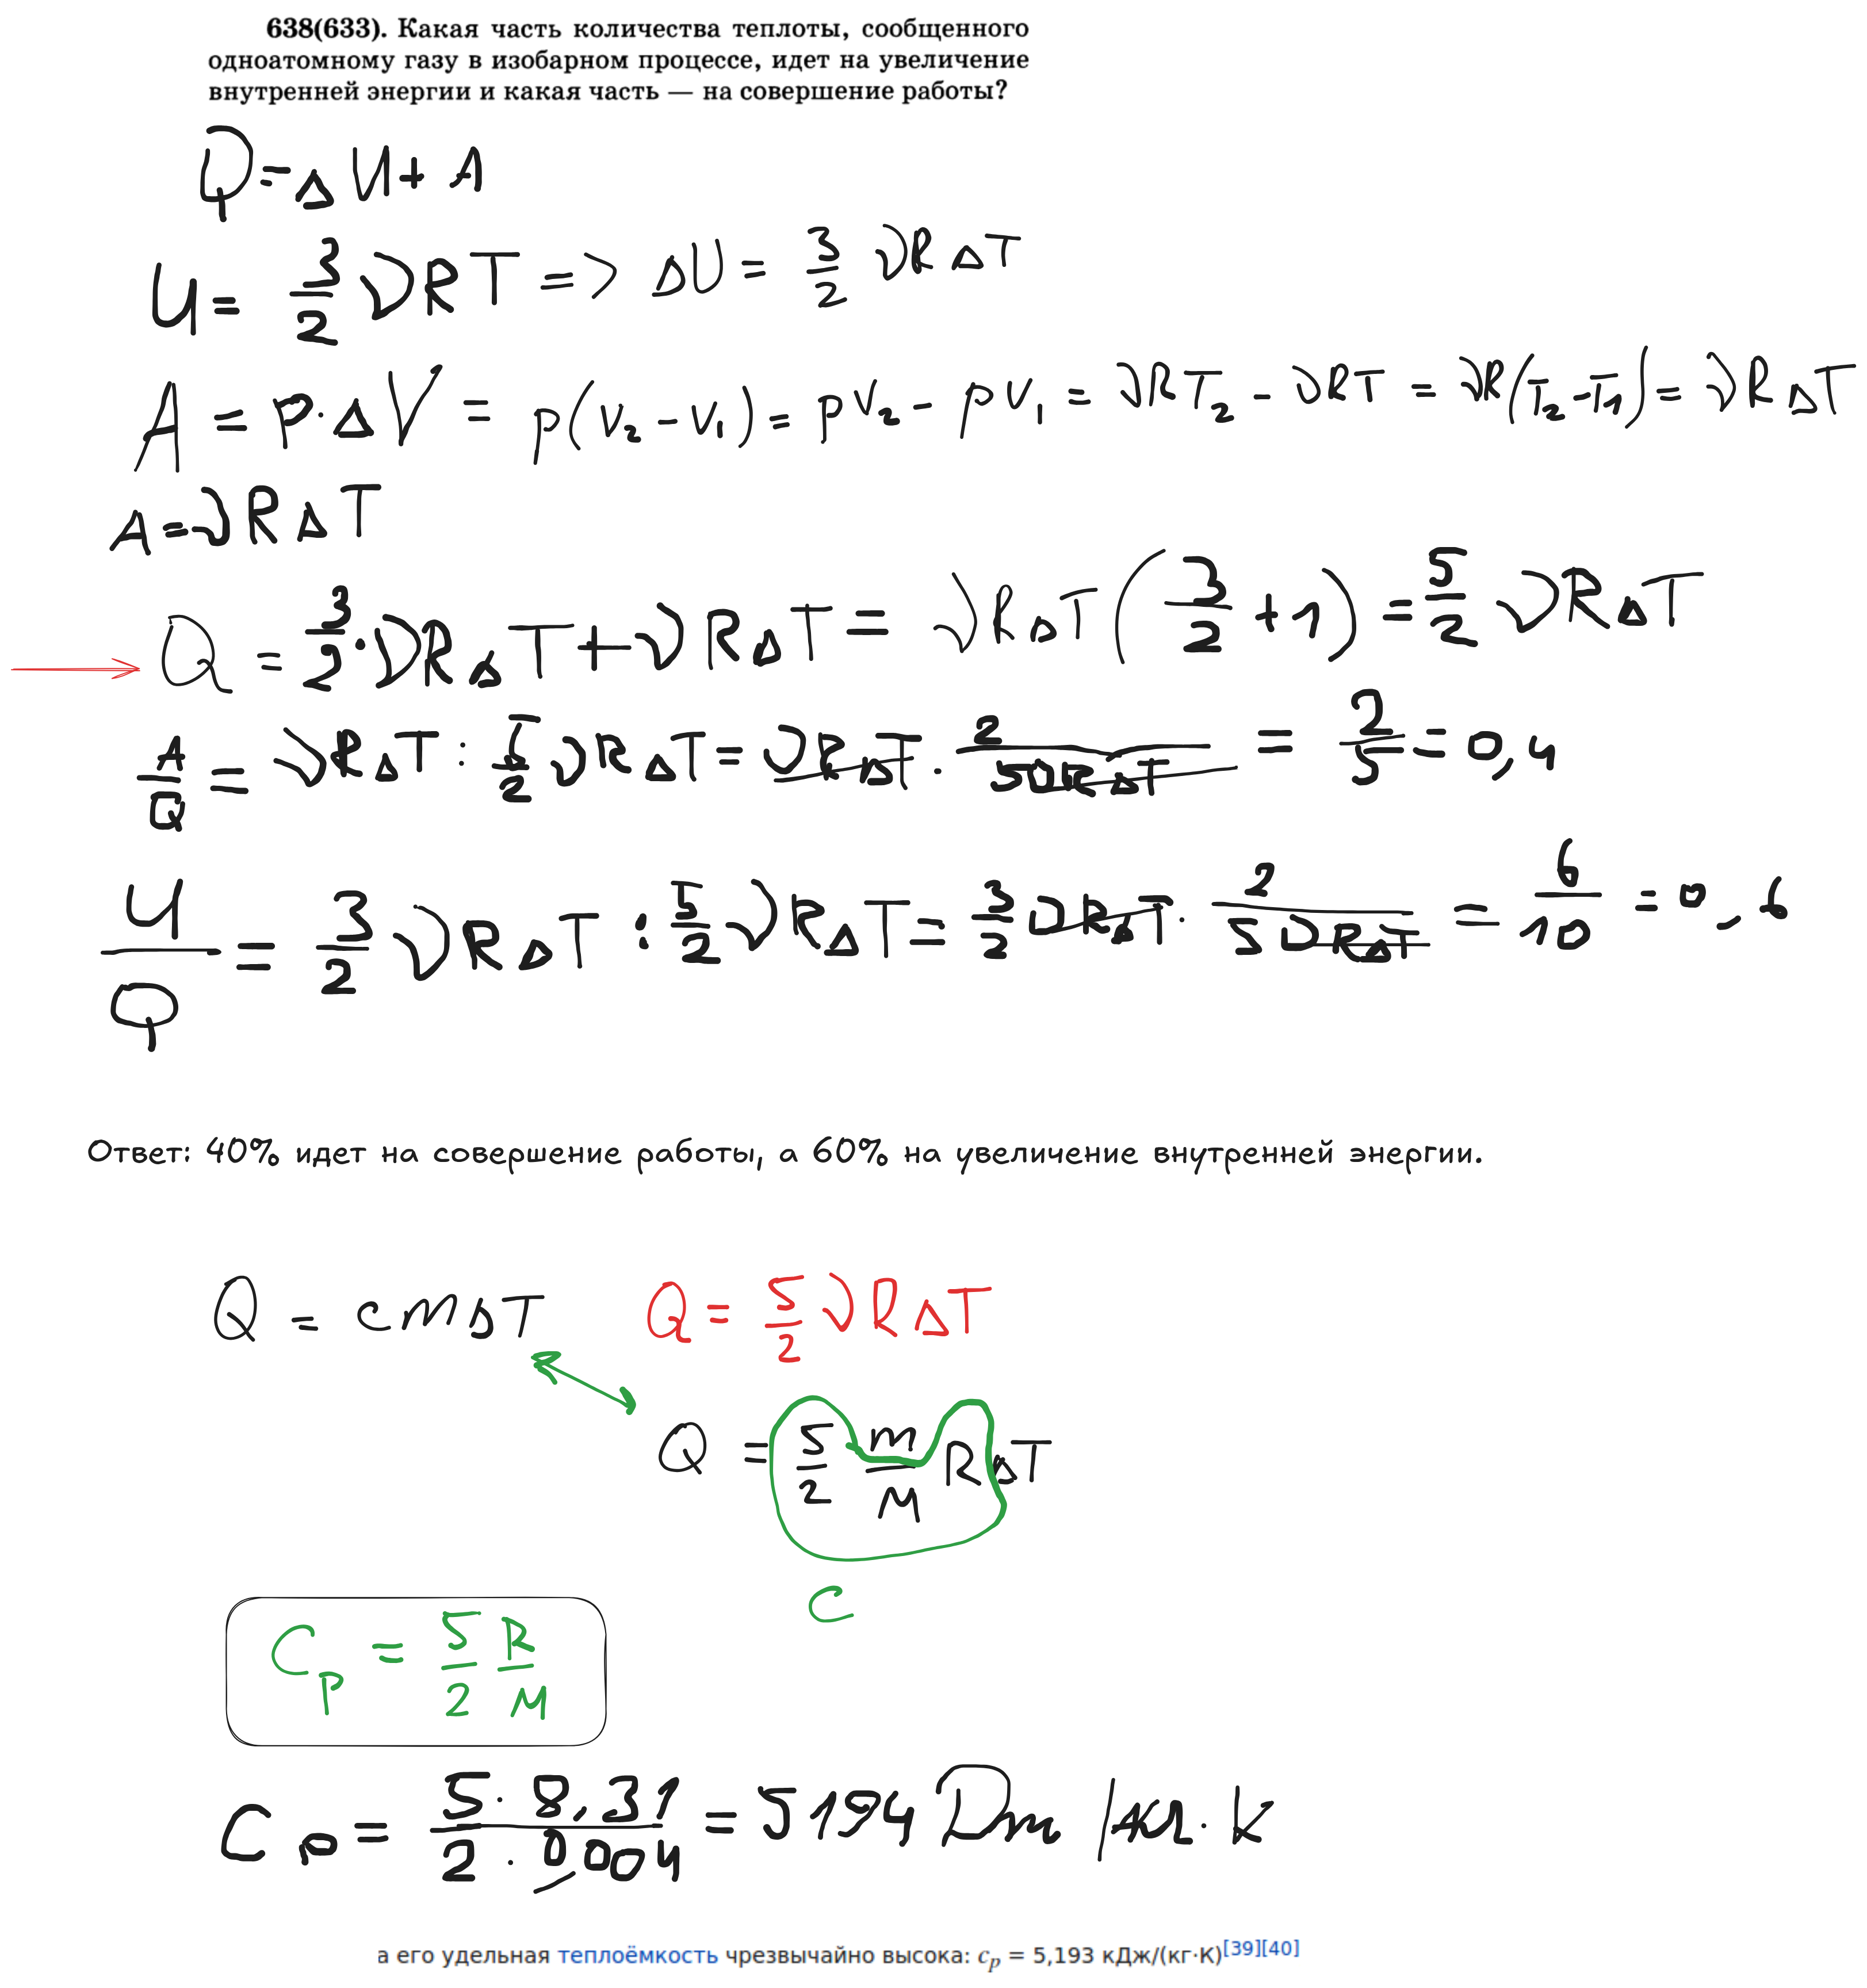 638(633). Какая часть количества теплоты, сообщенного
одноатомному газу в изобарном процессе, идет на увеличение
внутренней энергии и какая часть — на совершение работы?
Q = Δ U + A
U = 3/2 νRT => ΔU = 3/2 νRΔT
A = p · ΔV = p(V₂ - V₁) = pV₂ - pV₁ = νRT₂ - νRT = νR(T₂ - T₁) = νRΔT
A = νRΔT
Q = 3/2 · νRΔT + νRΔT = νRΔT(3/2 + 1) = 5/2 νRΔT
A/Q = νRΔT : 5/2 νRΔT = νRΔT · 2/5νRΔT = 2/5 = 0,4
U/Q = 3/2 νRΔT : 5/2 νRΔT = 3/2 νRΔT · 2/5νRΔT = 6/10 = 0,6
Ответ: 40% идет на совершение работы, а 60% на увеличение внутренней энергии.
Q = cmΔT Q = 5/2 νRΔT
Q = 5/2 m/M RΔT
C
Cp = 5/2 R/M
Cp = 5 · 8,31 / 2 · 0,004 = 5194 Дж/кг · К
а его удельная теплоёмкость чрезвычайно высока: cp = 5,193 кДж/(кг·К)[39][40]